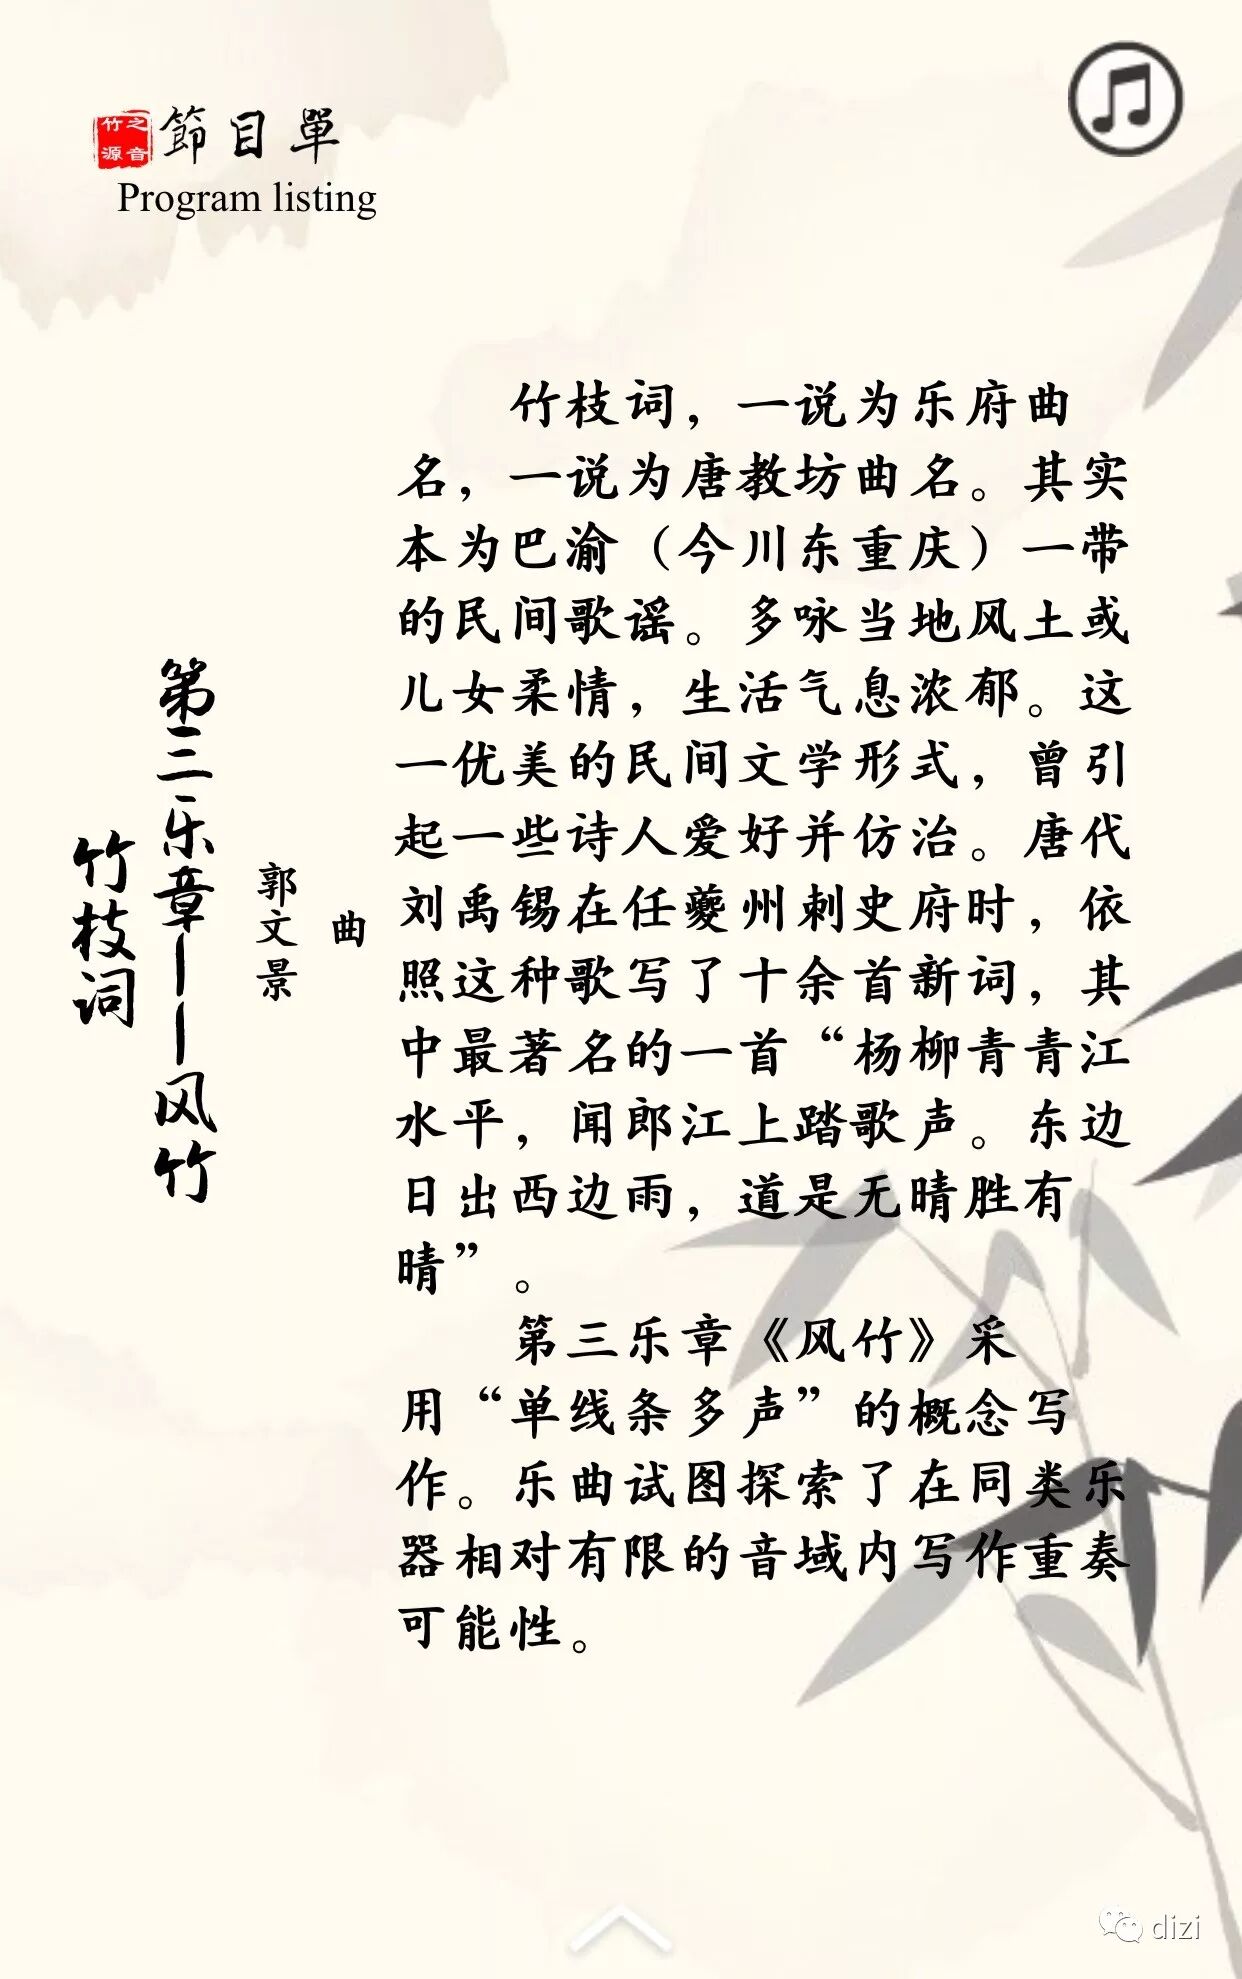 竹之
源音
節目單
Program listing
竹枝词
第三乐章——风竹
郭文景
曲
竹枝词，一说为乐府曲
名，一说为唐教坊曲名。其实
本为巴渝（今川东重庆）一带
的民间歌谣。多咏当地风土或
儿女柔情，生活气息浓郁。这
一优美的民间文学形式，曾引
起一些诗人爱好并仿治。唐代
刘禹锡在任夔州刺史府时，依
照这种歌写了十余首新词，其
中最著名的一首“杨柳青青江
水平，闻郎江上踏歌声。东边
日出西边雨，道是无晴胜有
晴”。
第三乐章《风竹》采
用“单线条多声”的概念写
作。乐曲试图探索了在同类乐
器相对有限的音域内写作重奏
可能性。
dizi